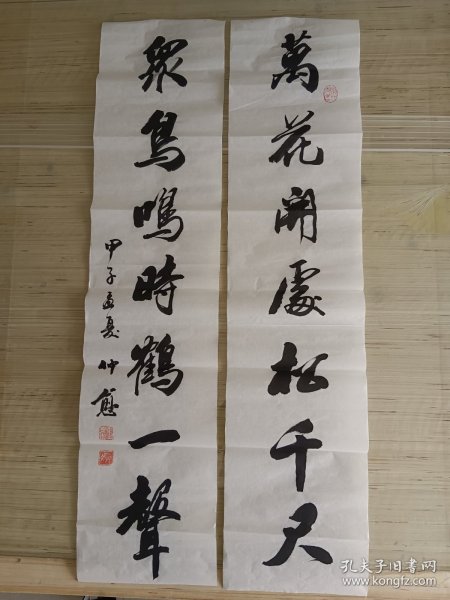 萬花開處松千尺
眾鳥鳴時鶴一聲
甲子孟夏 仲愈
孔夫子旧书网
www.kongfz.com